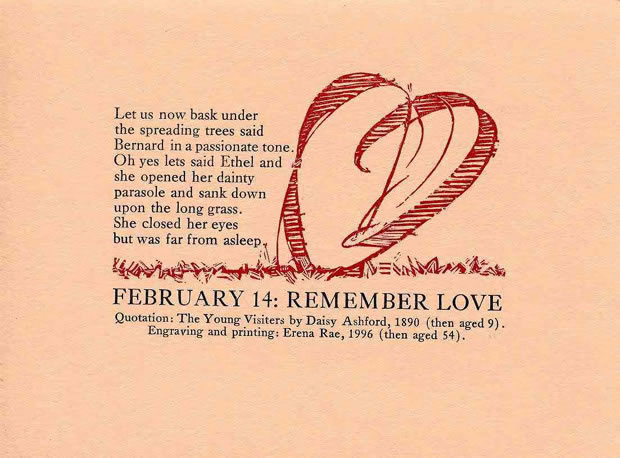 Let us now bask under
the spreading trees said
Bernard in a passionate tone.
Oh yes lets said Ethel and
she opened her dainty
parasole and sank down
upon the long grass.
She closed her eyes
but was far from asleep.
FEBRUARY 14: REMEMBER LOVE
Quotation: The Young Visiters by Daisy Ashford, 1890 (then aged 9).
Engraving and printing: Erena Rae, 1996 (then aged 54).